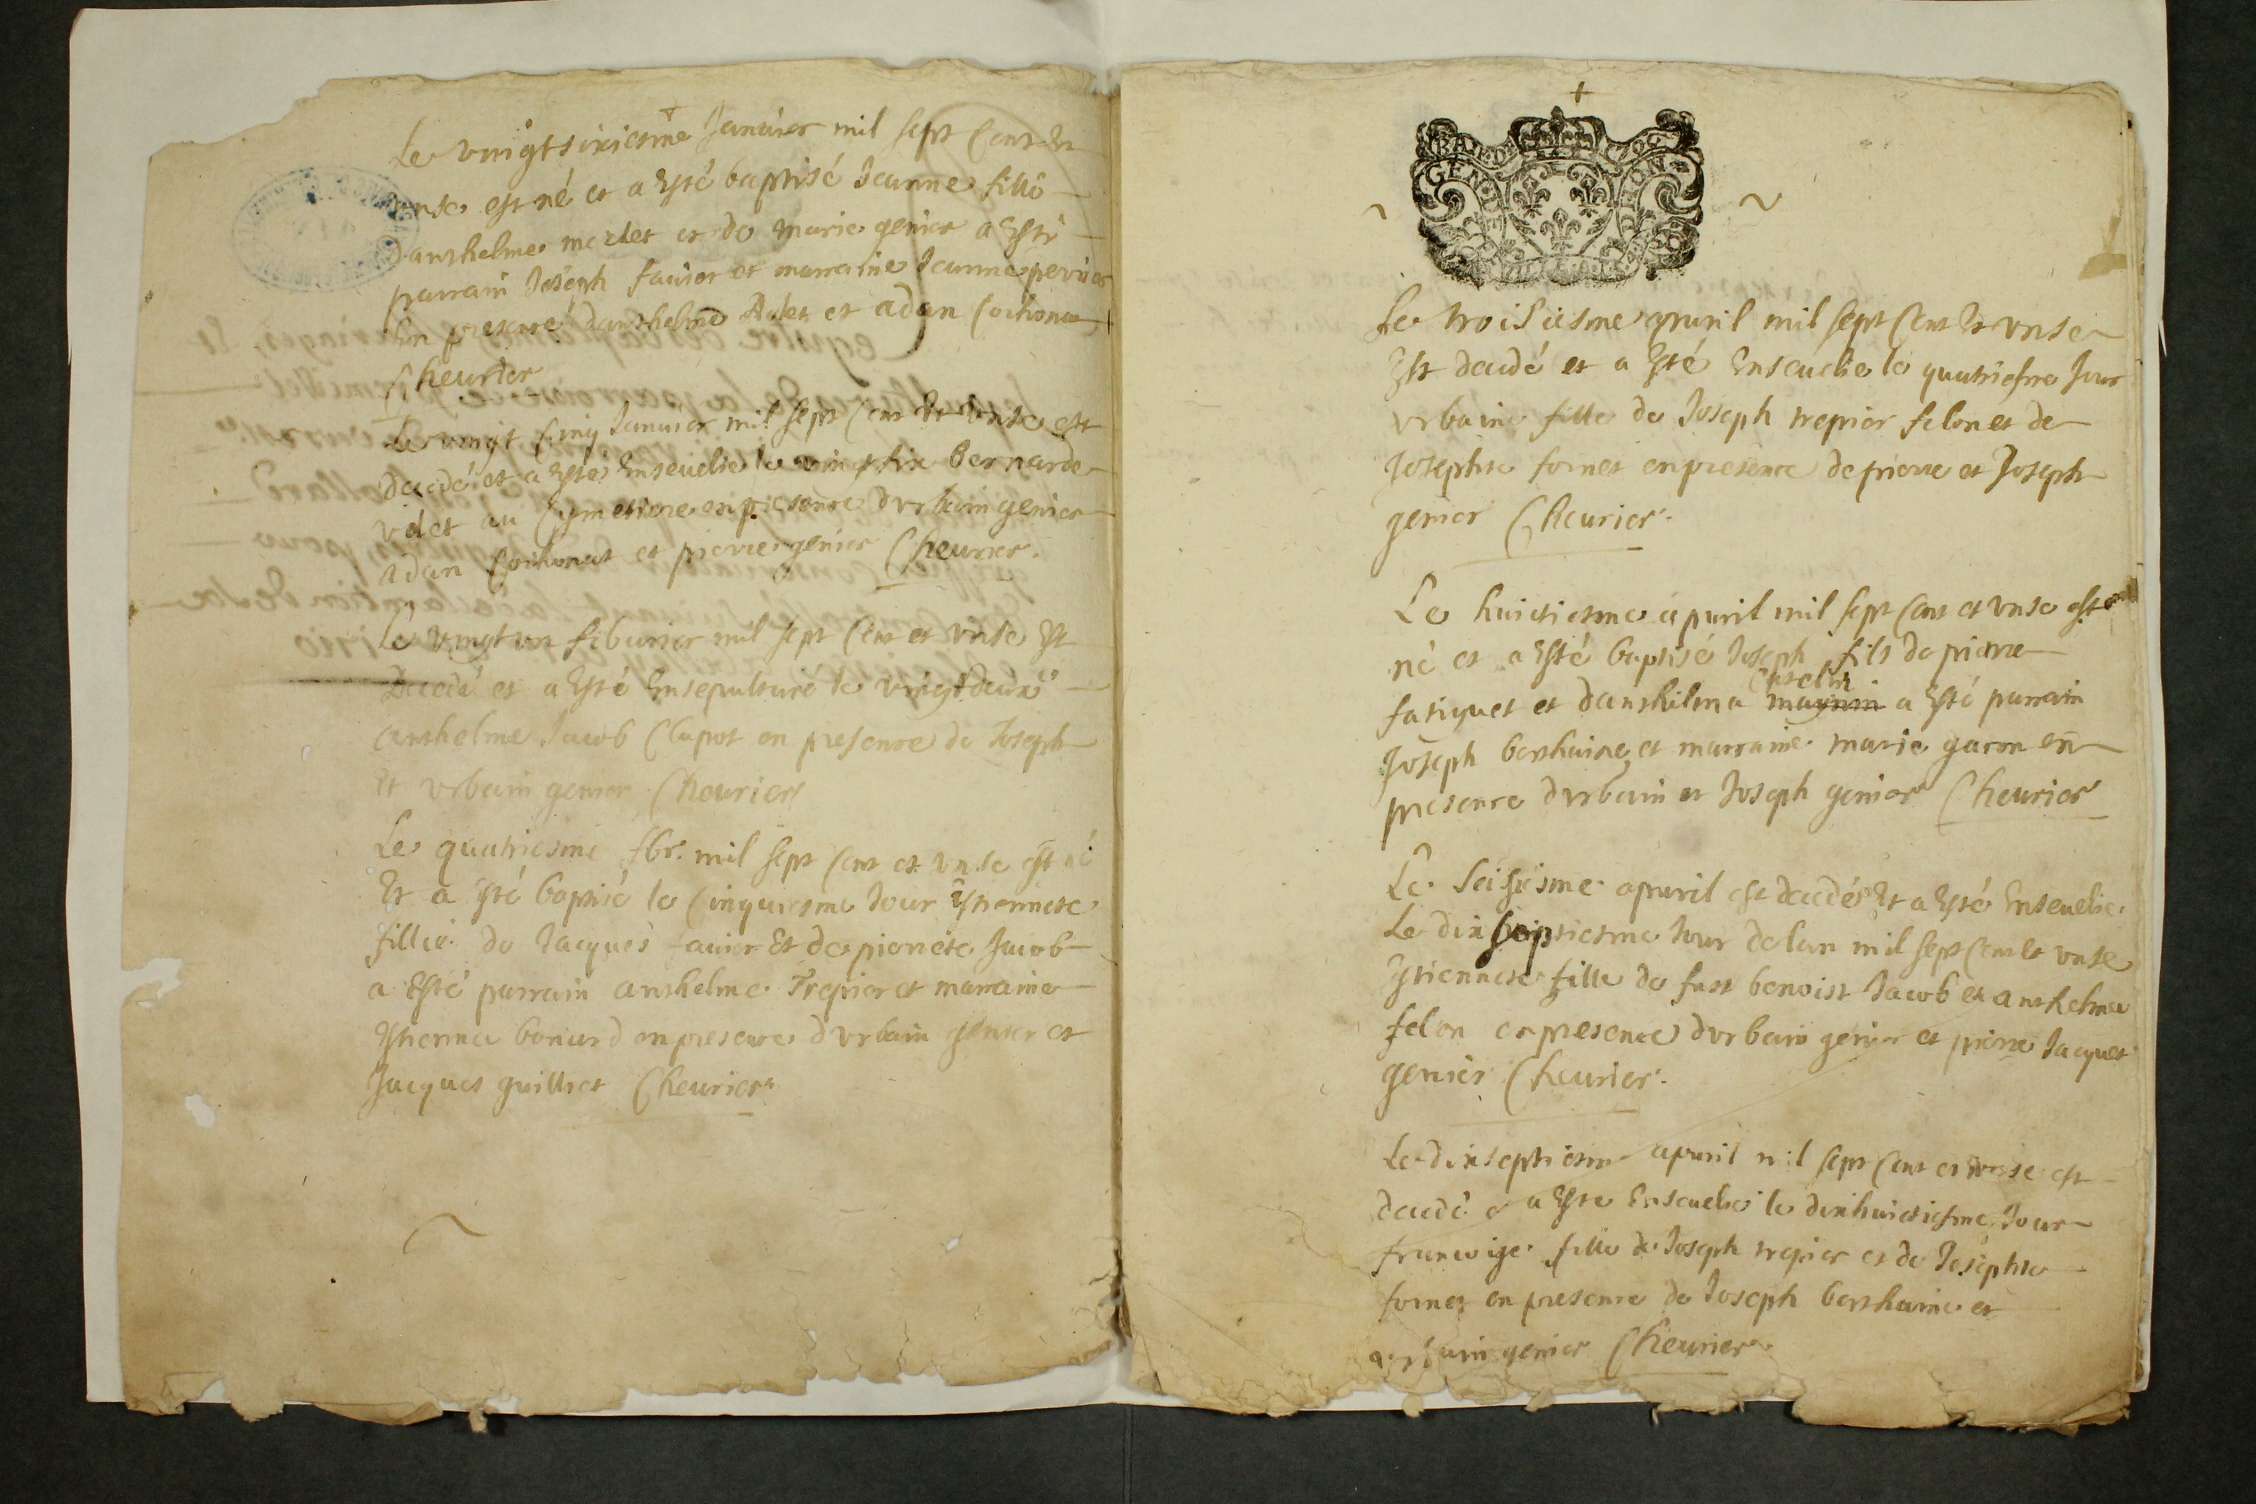 Le vingtsixiesme Januier mil sept Cent Et
unse est né et a Esté baptisé Jeanne fille
d'anthelme merlet et de marie genier a Esté
parrain Joseph fauier et marraine Jeanne
En presence d'anthelme et adan Cochonat
Cheurier
Le vingt sinq Januier mil sept Cent Et unse est
decedé et a Esté Enseuelie le vingt six bernarde
au Cymetiere en presence d'vrbain genier
adan Cochonat et pierre genier Cheurier.
Le vingt un feburier mil sept Cent et vnse Est
Decedé et a Esté Ensepulturé le vingtdeux
anthelme Jacob Clapot en presence de Joseph
et vrbain genier Cheurier
Le quatriesme fbr. mil sept Cent et vnse est né
Et a Esté baptisé le Cinquiesme Jour Estiennete
fillie de Jacques fauier Et de pierrete Jacob
a Esté parrain anthelme Trepier et marraine
Estienna bonard en presence d'vrbain genier et
Jacques guilliet Cheurier
GEN
Le troisiesme apuril mil sept Cent Et vnse
Est decedé et a Esté Enseuelie le quatriesme Jour
vrbaine fille de Joseph trepier felon et de
Josephte fornet en presence de pierre et Joseph
genier Cheurier.
Le huictiesme apuril mil sept Cent et vnse est
né et a Esté baptisé Joseph fils de pierre
fatiquet et d'anthelma maynin a Esté parrain
Joseph berthaine et marraine marie garon en
presence d'vrbain et Joseph genier Cheurier
Le Seisiesme apuril est decedé Et a Esté Enseuelie
Le dix septiesme Jour de lan mil sept Cent Et vnse
Estiennete fille de fust benoist Jacob et anthelma
felon en presence d'vrbain genier et pierre Jacquet
genier Cheurier.
Le dixseptiesme apuril mil sept Cent et vnse est
decedé et a Esté Enseuelie le dixhuictiesme Jour
francoise fille de Joseph trepier et de Josephte
fornet en presence de Joseph berthaine et
vrbain genier Cheurier.